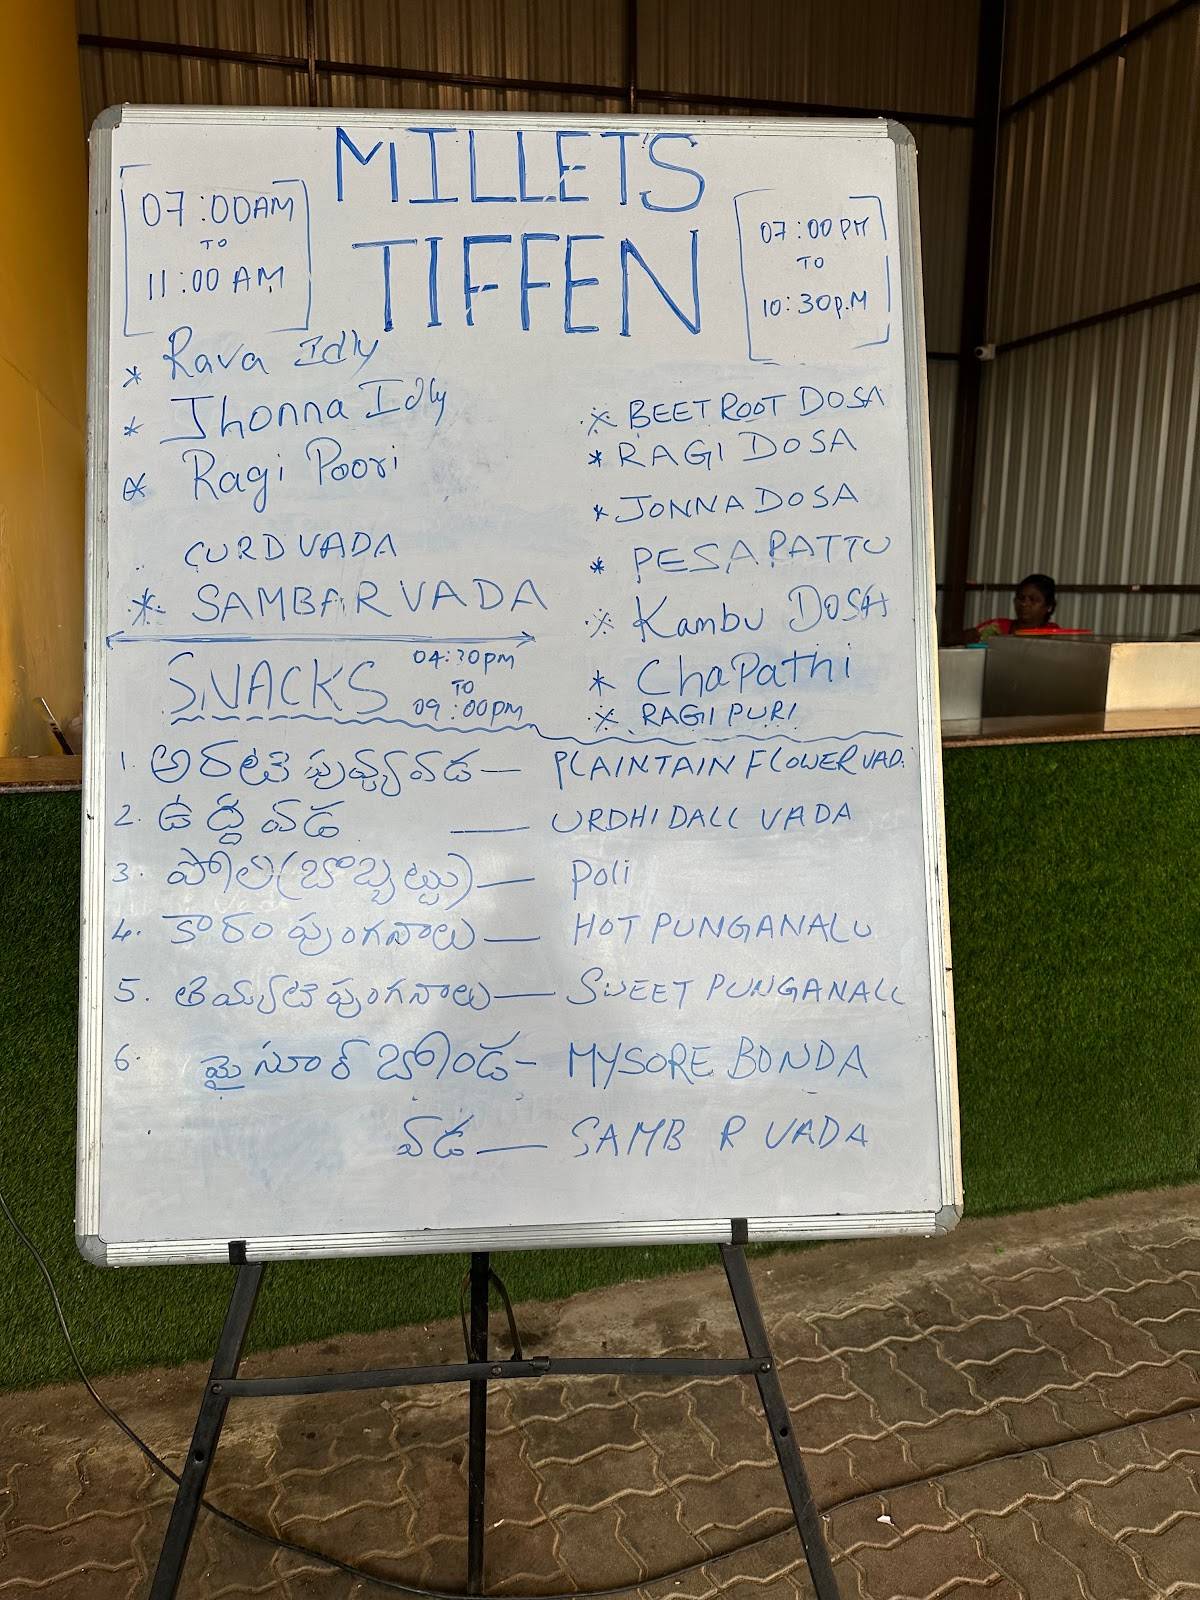 MILLETS
TIFFEN
07:00AM
TO
11:00 AM
07:00 PM
TO
10:30P.M
* Rava Idly
* Jhonna Idly
* Ragi Poori
CURD VADA
* SAMBAR VADA
* BEETROOT DOSA
* RAGI DOSA
* JONNA DOSA
* PESAPATTU
* Kambu DOSA
* ChaPathi
* RAGI PURI
SNACKS
04:30pm
TO
09:00pm
1. అరటి పువ్వు వడ — PLAINTAIN FLOWER VAD.
2. ఉద్ది వడ — URDHI DALL VADA
3. పోలి(బొబ్బట్టు) — Poli
4. కారం పుంగనాలు — HOT PUNGANALU
5. తియ్యటి పుంగనాలు — SWEET PUNGANALL
6. మైసూర్ బోండ - MYSORE BONDA
వడ — SAMB R VADA